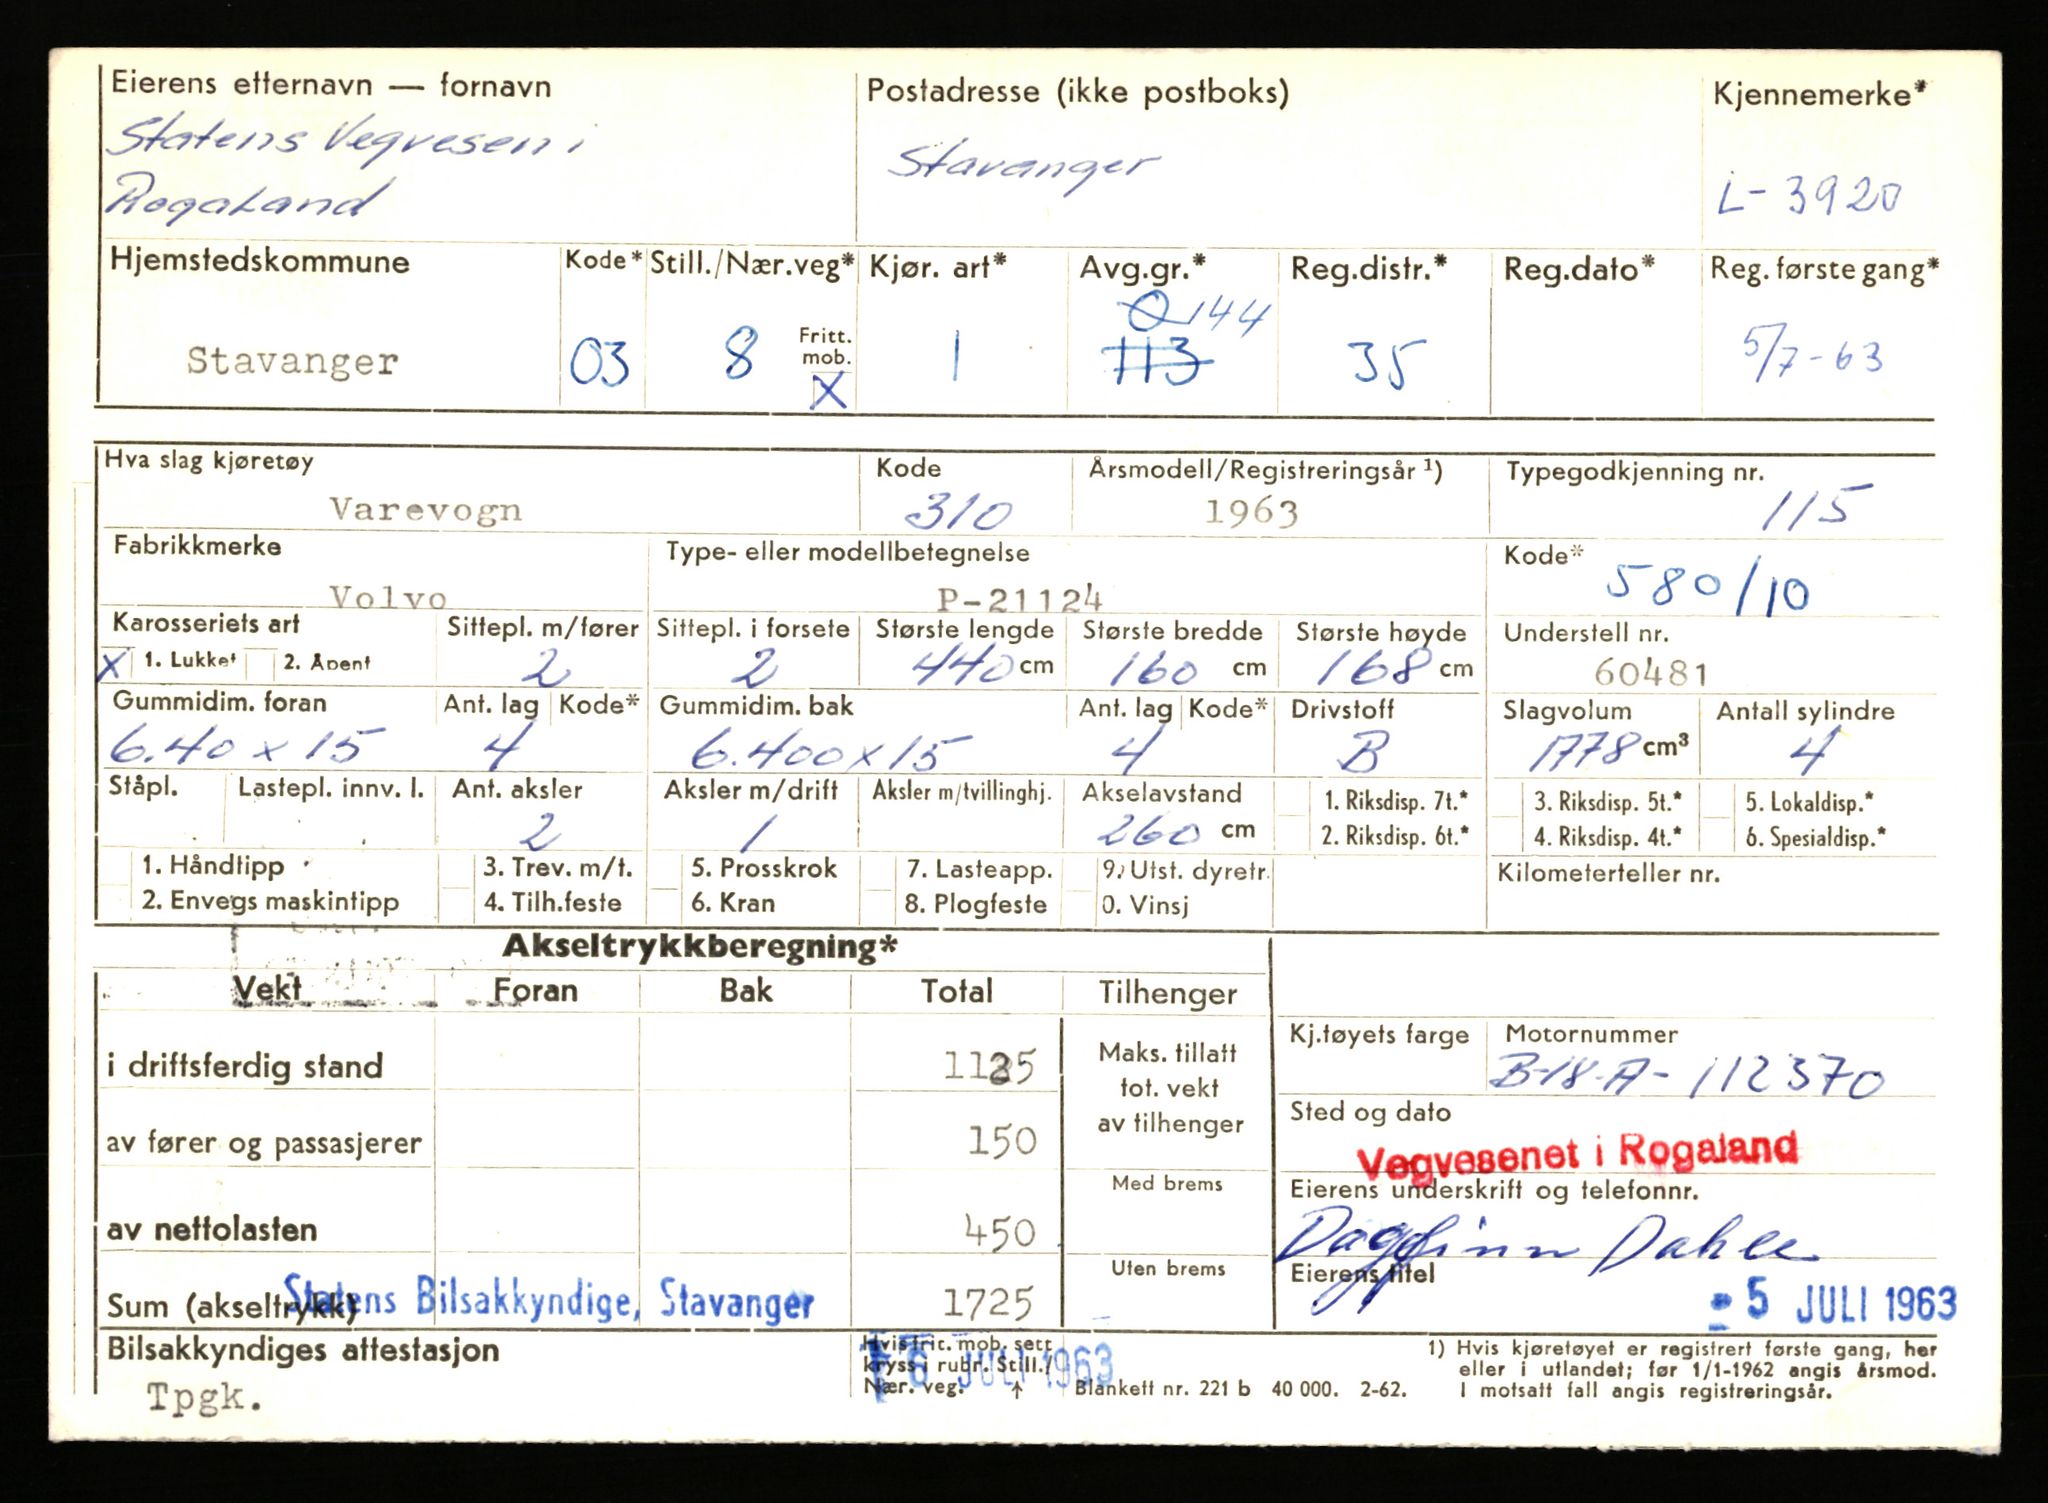 Eierens etternavn — fornavn
Statens Vegvesen i
Rogaland
Postadresse (ikke postboks)
Stavanger
Kjennemerke*
L-3920
Hjemstedskommune
Stavanger
Kode*
03
Still./Nær.veg*
8
Fritt.
mob.
X
Kjør. art*
1
Avg.gr.*
0 144
113
Reg.distr.*
35
Reg.dato*
Reg. første gang*
5/7-63
Hva slag kjøretøy
Varevogn
Kode
310
Årsmodell/Registreringsår ¹)
1963
Typegodkjenning nr.
115
Fabrikkmerke
Volvo
Type- eller modellbetegnelse
P-21124
Kode*
580/10
Karosseriets art
X 1. Lukket 2. Åpent
Sittepl. m/fører
2
Sittepl. i forsete
2
Største lengde
440 cm
Største bredde
160 cm
Største høyde
168 cm
Understell nr.
60481
Gummidim. foran
6.40 x 15
Ant. lag
4
Kode*
Gummidim. bak
6.400 x 15
Ant. lag
4
Kode*
Drivstoff
B
Slagvolum
1778 cm³
Antall sylindre
4
Ståpl.
Lastepl. innv. l.
Ant. aksler
2
Aksler m/drift
1
Aksler m/tvillinghj.
Akselavstand
260 cm
1. Riksdisp. 7t.*
2. Riksdisp. 6t.*
3. Riksdisp. 5t.*
4. Riksdisp. 4t.*
5. Lokaldisp.*
6. Spesialdisp.*
1. Håndtipp
2. Envegs maskintipp
3. Trev. m/t.
4. Tilh.feste
5. Prosskrok
6. Kran
7. Lasteapp.
8. Plogfeste
9. Utst. dyretr.
0. Vinsj
Kilometerteller nr.
Akseltrykkberegning*
Vekt Foran Bak Total Tilhenger
i driftsferdig stand 1125
av fører og passasjerer 150
av nettolasten 450
Sum (akseltrykk) 1725
Statens Bilsakkyndige, Stavanger
Maks. tillatt
tot. vekt
av tilhenger
Med brems
Uten brems
Kj.tøyets farge
Motornummer
B-18-A-112370
Sted og dato
Vegvesenet i Rogaland
Eierens underskrift og telefonnr.
Dagfinn Dahle
Eierens titel
- 5 JULI 1963
Bilsakkyndiges attestasjon
Tpgk.
Hvis fric. mob. sett
kryss i rubr. Still./
Nær. veg. ↑
JULI 1963
Blankett nr. 221 b 40 000. 2-62.
1) Hvis kjøretøyet er registrert første gang, her
eller i utlandet; før 1/1-1962 angis årsmod.
I motsatt fall angis registreringsår.